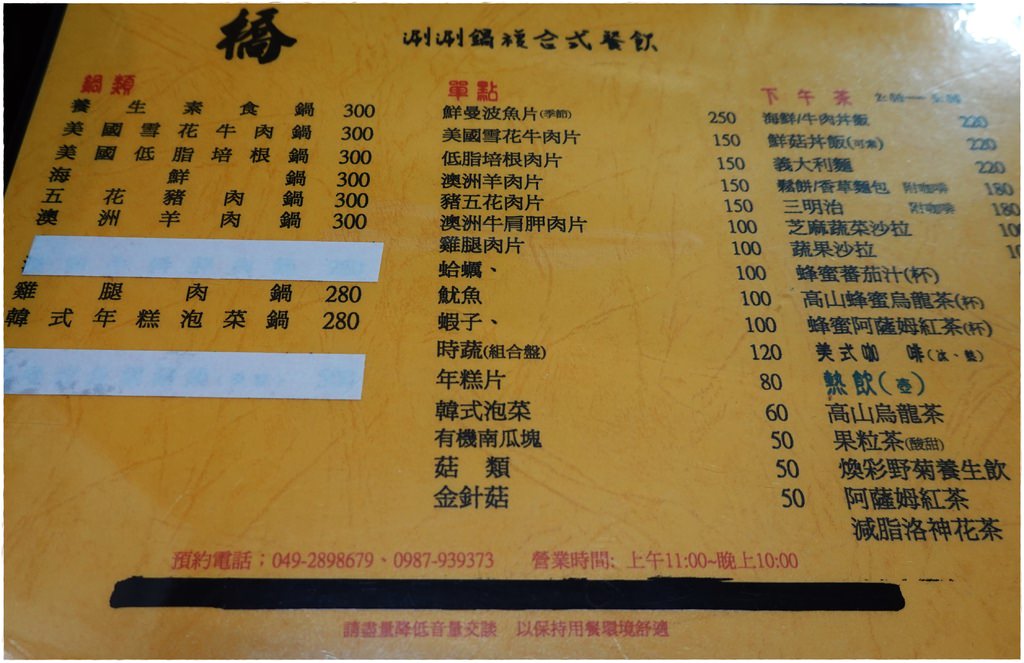 橋 涮涮鍋複合式餐飲
鍋類
養生素食鍋 300
美國雪花牛肉鍋 300
美國低脂培根鍋 300
海鮮鍋 300
五花豬肉鍋 300
澳洲羊肉鍋 300
雞腿肉鍋 280
韓式年糕泡菜鍋 280
單點
鮮曼波魚片(季節) 250
美國雪花牛肉片 150
低脂培根肉片 150
澳洲羊肉片 150
豬五花肉片 150
澳洲牛肩胛肉片 100
雞腿肉片 100
蛤蠣、 100
魷魚 100
蝦子、 100
時蔬(組合盤) 120
年糕片 80
韓式泡菜 60
有機南瓜塊 50
菇類 50
金針菇 50
下午茶
海鮮/牛肉丼飯 220
鮮菇丼飯(可素) 220
義大利麵 220
鬆餅/香草麵包 附咖啡 180
三明治 附咖啡 180
芝麻蔬菜沙拉
蔬果沙拉
蜂蜜蕃茄汁(杯)
高山蜂蜜烏龍茶(杯)
蜂蜜阿薩姆紅茶(杯)
美式咖啡(冰、熱)
熱飲(壺)
高山烏龍茶
果粒茶(酸甜)
煥彩野菊養生飲
阿薩姆紅茶
減脂洛神花茶
預約電話：049-2898679、0987-939373 營業時間: 上午11:00~晚上10:00
請盡量降低音量交談 以保持用餐環境舒適